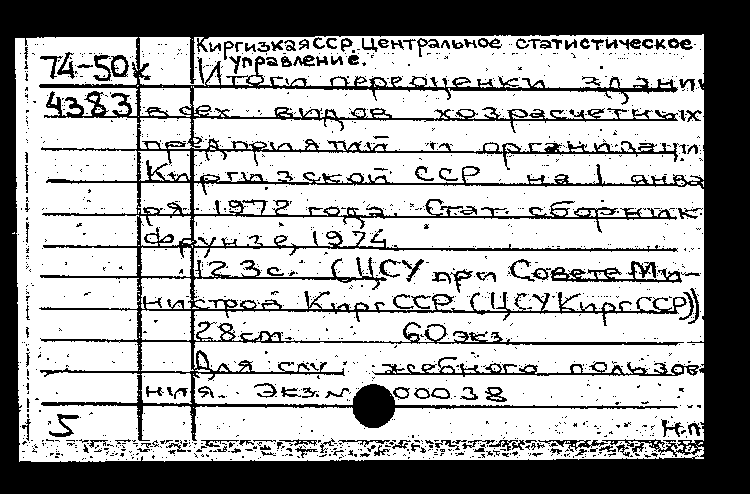 Киргизкая ССР. Центральное статистическое
управление.
74-50к
Итоги переоценки здани
4383 всех видов хозрасчетных
предприятий и организаци
Киргизской ССР на 1 янва
ря 1972 года. Стат. сборник
Фрунзе, 1974.
123с. (ЦСУ при Совете Ми-
нистров Кирг ССР (ЦСУ Кирг ССР)).
28см. 60 экз.
Для слу жебного пользов
ния. Экз. № 00038
5 Н.п